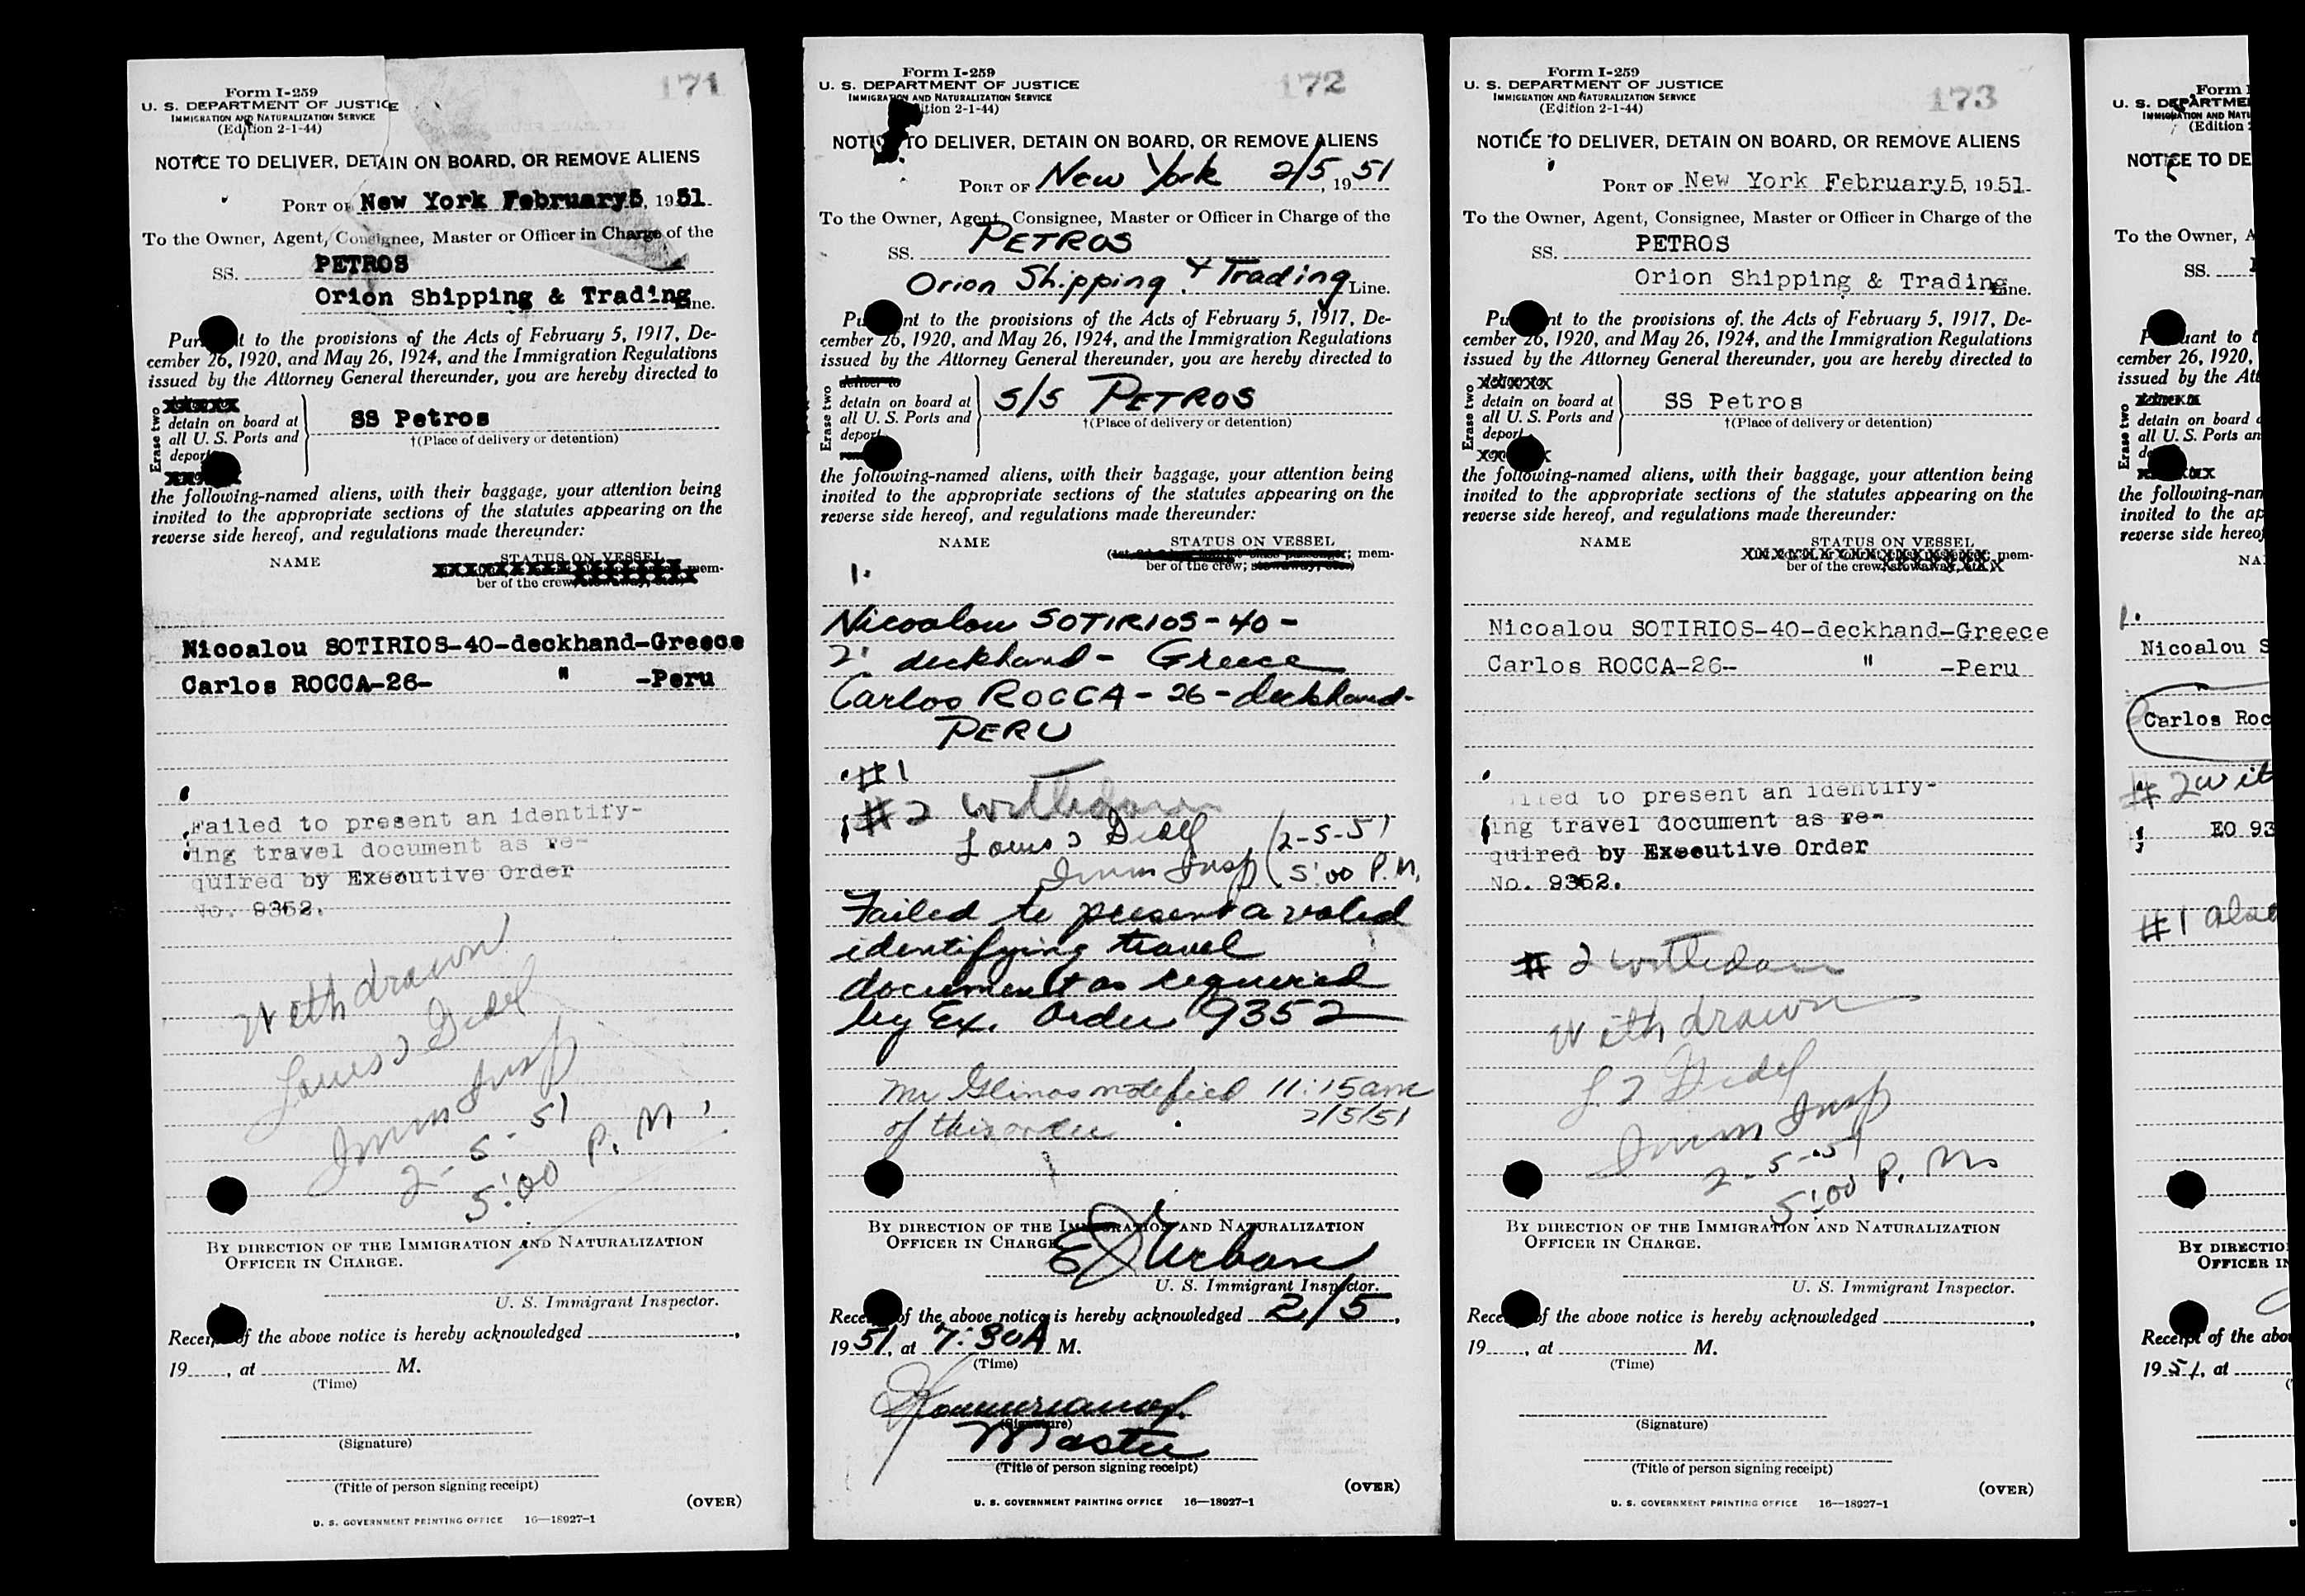 171
Form I-259
U. S. DEPARTMENT OF JUSTICE
IMMIGRATION AND NATURALIZATION SERVICE
(Edition 2-1-44)
NOTICE TO DELIVER, DETAIN ON BOARD, OR REMOVE ALIENS
PORT OF New York February 5, 1951
To the Owner, Agent, Consignee, Master or Officer in Charge of the
SS. PETROS
Orion Shipping & Trading Line.
Pursuant to the provisions of the Acts of February 5, 1917, De-
cember 26, 1920, and May 26, 1924, and the Immigration Regulations
issued by the Attorney General thereunder, you are hereby directed to
Erase two
detain on board at
all U. S. Ports and
deport
SS Petros
†(Place of delivery or detention)
the following-named aliens, with their baggage, your attention being
invited to the appropriate sections of the statutes appearing on the
reverse side hereof, and regulations made thereunder:
NAME STATUS ON VESSEL
mem-
ber of the crew;
Nicoalou SOTIRIOS-40-deckhand-Greece
Carlos ROCCA-26- " -Peru
Failed to present an identify-
ing travel document as re-
quired by Executive Order
No. 9352.
Withdrawn
Imm Insp
2-5-51
5:00 P. M.
BY DIRECTION OF THE IMMIGRATION AND NATURALIZATION
OFFICER IN CHARGE.
U. S. Immigrant Inspector.
Receipt of the above notice is hereby acknowledged
19, at M.
(Time)
(Signature)
(Title of person signing receipt)
(OVER)
U. S. GOVERNMENT PRINTING OFFICE 16—18927-1
172
Form I-259
U. S. DEPARTMENT OF JUSTICE
IMMIGRATION AND NATURALIZATION SERVICE
(Edition 2-1-44)
NOTICE TO DELIVER, DETAIN ON BOARD, OR REMOVE ALIENS
PORT OF New York 2/5, 1951
To the Owner, Agent, Consignee, Master or Officer in Charge of the
SS. PETROS
Orion Shipping & Trading Line.
Pursuant to the provisions of the Acts of February 5, 1917, De-
cember 26, 1920, and May 26, 1924, and the Immigration Regulations
issued by the Attorney General thereunder, you are hereby directed to
Erase two
deliver to
detain on board at
all U. S. Ports and
deport
S/S PETROS
†(Place of delivery or detention)
the following-named aliens, with their baggage, your attention being
invited to the appropriate sections of the statutes appearing on the
reverse side hereof, and regulations made thereunder:
NAME STATUS ON VESSEL
mem-
ber of the crew; stowaway, etc.)
1.
Nicoalou SOTIRIOS - 40 -
2. deckhand - Greece
Carlos ROCCA - 26 - deckhand-
PERU
#1
#2 withdrawn
2-5-51
Imm Insp 5:00 P.M.
Failed to present a valid
identifying travel
document as required
by Ex. Order 9352
Mr Glinos notified 11:15am
of this order 2/5/51
BY DIRECTION OF THE IMMIGRATION AND NATURALIZATION
OFFICER IN CHARGE.
Urban
U. S. Immigrant Inspector.
Receipt of the above notice is hereby acknowledged 2/5,
1951, at 7:30A M.
(Time)
(Signature)
Master
(Title of person signing receipt)
(OVER)
U. S. GOVERNMENT PRINTING OFFICE 16—18927-1
173
Form I-259
U. S. DEPARTMENT OF JUSTICE
IMMIGRATION AND NATURALIZATION SERVICE
(Edition 2-1-44)
NOTICE TO DELIVER, DETAIN ON BOARD, OR REMOVE ALIENS
PORT OF New York February 5, 1951
To the Owner, Agent, Consignee, Master or Officer in Charge of the
SS. PETROS
Orion Shipping & Trading Line.
Pursuant to the provisions of the Acts of February 5, 1917, De-
cember 26, 1920, and May 26, 1924, and the Immigration Regulations
issued by the Attorney General thereunder, you are hereby directed to
Erase two
detain on board at
all U. S. Ports and
deport
SS Petros
†(Place of delivery or detention)
the following-named aliens, with their baggage, your attention being
invited to the appropriate sections of the statutes appearing on the
reverse side hereof, and regulations made thereunder:
NAME STATUS ON VESSEL
mem-
ber of the crew;
Nicoalou SOTIRIOS-40-deckhand-Greece
Carlos ROCCA-26- " -Peru
Failed to present an identify-
ing travel document as re-
quired by Executive Order
No. 9352.
# 2 withdrawn
Withdrawn
Imm Insp
2-5-51
5:00 P. M.
BY DIRECTION OF THE IMMIGRATION AND NATURALIZATION
OFFICER IN CHARGE.
U. S. Immigrant Inspector.
Receipt of the above notice is hereby acknowledged
19, at M.
(Time)
(Signature)
(Title of person signing receipt)
(OVER)
U. S. GOVERNMENT PRINTING OFFICE 16—18927-1
Form
U. S. DEPARTME
IMMIGRATION AND NATU
(Edition
NOTICE TO DE
To the Owner, A
SS.
Pursuant to t
cember 26, 1920,
issued by the Att
Erase two
detain on board
all U. S. Ports an
the following-nam
invited to the ap
reverse side hereof
NA
1.
Nicoalou S
Carlos Roc
#2 wit
EO 93
#1 also
BY DIRECTIO
OFFICER IN
Receipt of the abov
1951, at